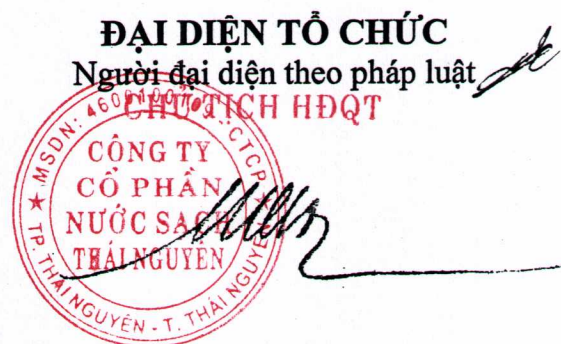 ĐẠI DIỆN TỔ CHỨC
Người đại diện theo pháp luật
CHỦ TỊCH HĐQT
MSDN: C.T.C.P
CÔNG TY
CỔ PHẦN
NƯỚC SẠCH
THÁI NGUYÊN
TP. THÁI NGUYÊN - T. THÁI NGUYÊN